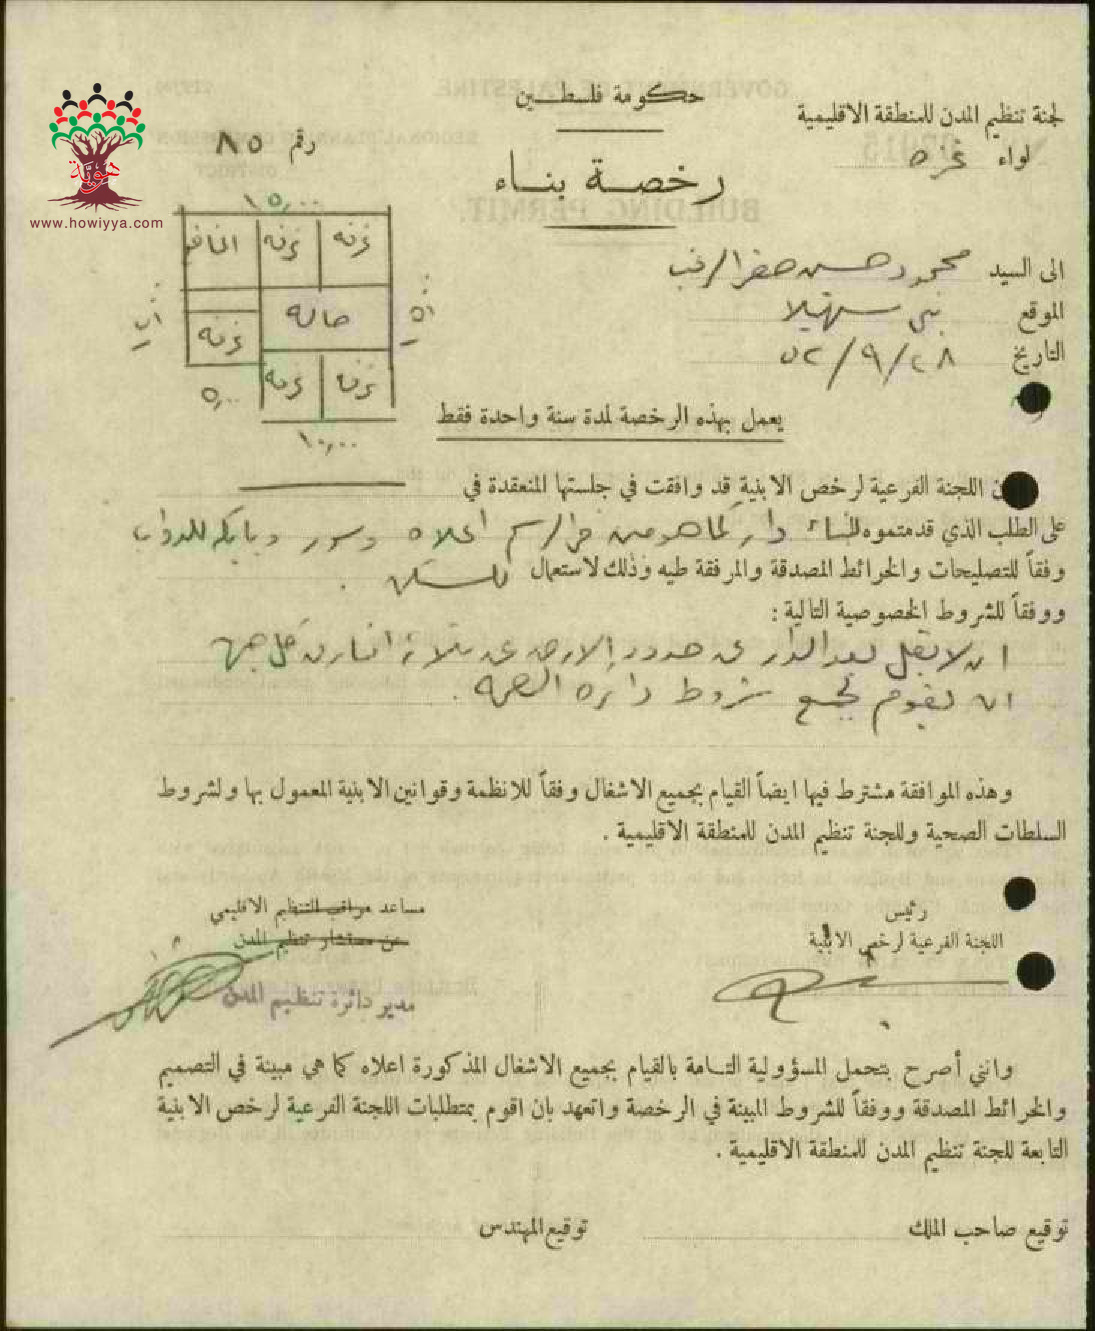 حكومة فلسطين
لجنة تنظيم المدن للمنطقة الاقليمية
لواء غزه
رقم ٨٥
رخصة بناء
هوية
www.howiyya.com
١٥٫٠٠
غرفه
غرفه
صاله
غرفه
غرفه
غرفه
٥٫٠٠
١٠٫٠٠
الى السيد محمود حسين
الموقع بني سهيلا
التاريخ ٥٢/٩/٢٨
يعمل بهذه الرخصة لمدة سنة واحدة فقط
اللجنة الفرعية لرخص الابنية قد وافقت في جلستها المنعقدة في
على الطلب الذي قدمتموه لانشاء دار كما هو مبين في الرسم اعلاه وسور
وفقاً للتصليحات والخرائط المصدقة والمرفقة طيه وذلك لاستعمال للسكن .
ووفقاً للشروط الخصوصية التالية :
ان لا يقل بعد الدار عن حدود الارض عن ثلاثة امتار من كل جهه
ان يقوم بجميع شروط دائرة الصحه .
وهذه الموافقة مشترط فيها ايضاً القيام بجميع الاشغال وفقاً للانظمة وقوانين الابنية المعمول بها ولشروط
السلطات الصحية وللجنة تنظيم المدن للمنطقة الاقليمية .
رئيس
اللجنة الفرعية لرخص الابنية
مساعد مراقب التنظيم الاقليمي
عن مستشار تنظيم المدن
مدير دائرة تنظيم المدن
وانني أصرح بتحمل المسؤولية التامة بالقيام بجميع الاشغال المذكورة اعلاه كما هي مبينة في التصميم
والخرائط المصدقة ووفقاً للشروط المبينة في الرخصة واتعهد بان اقوم بمتطلبات اللجنة الفرعية لرخص الابنية
التابعة للجنة تنظيم المدن للمنطقة الاقليمية .
توقيع صاحب الملك
توقيع المهندس